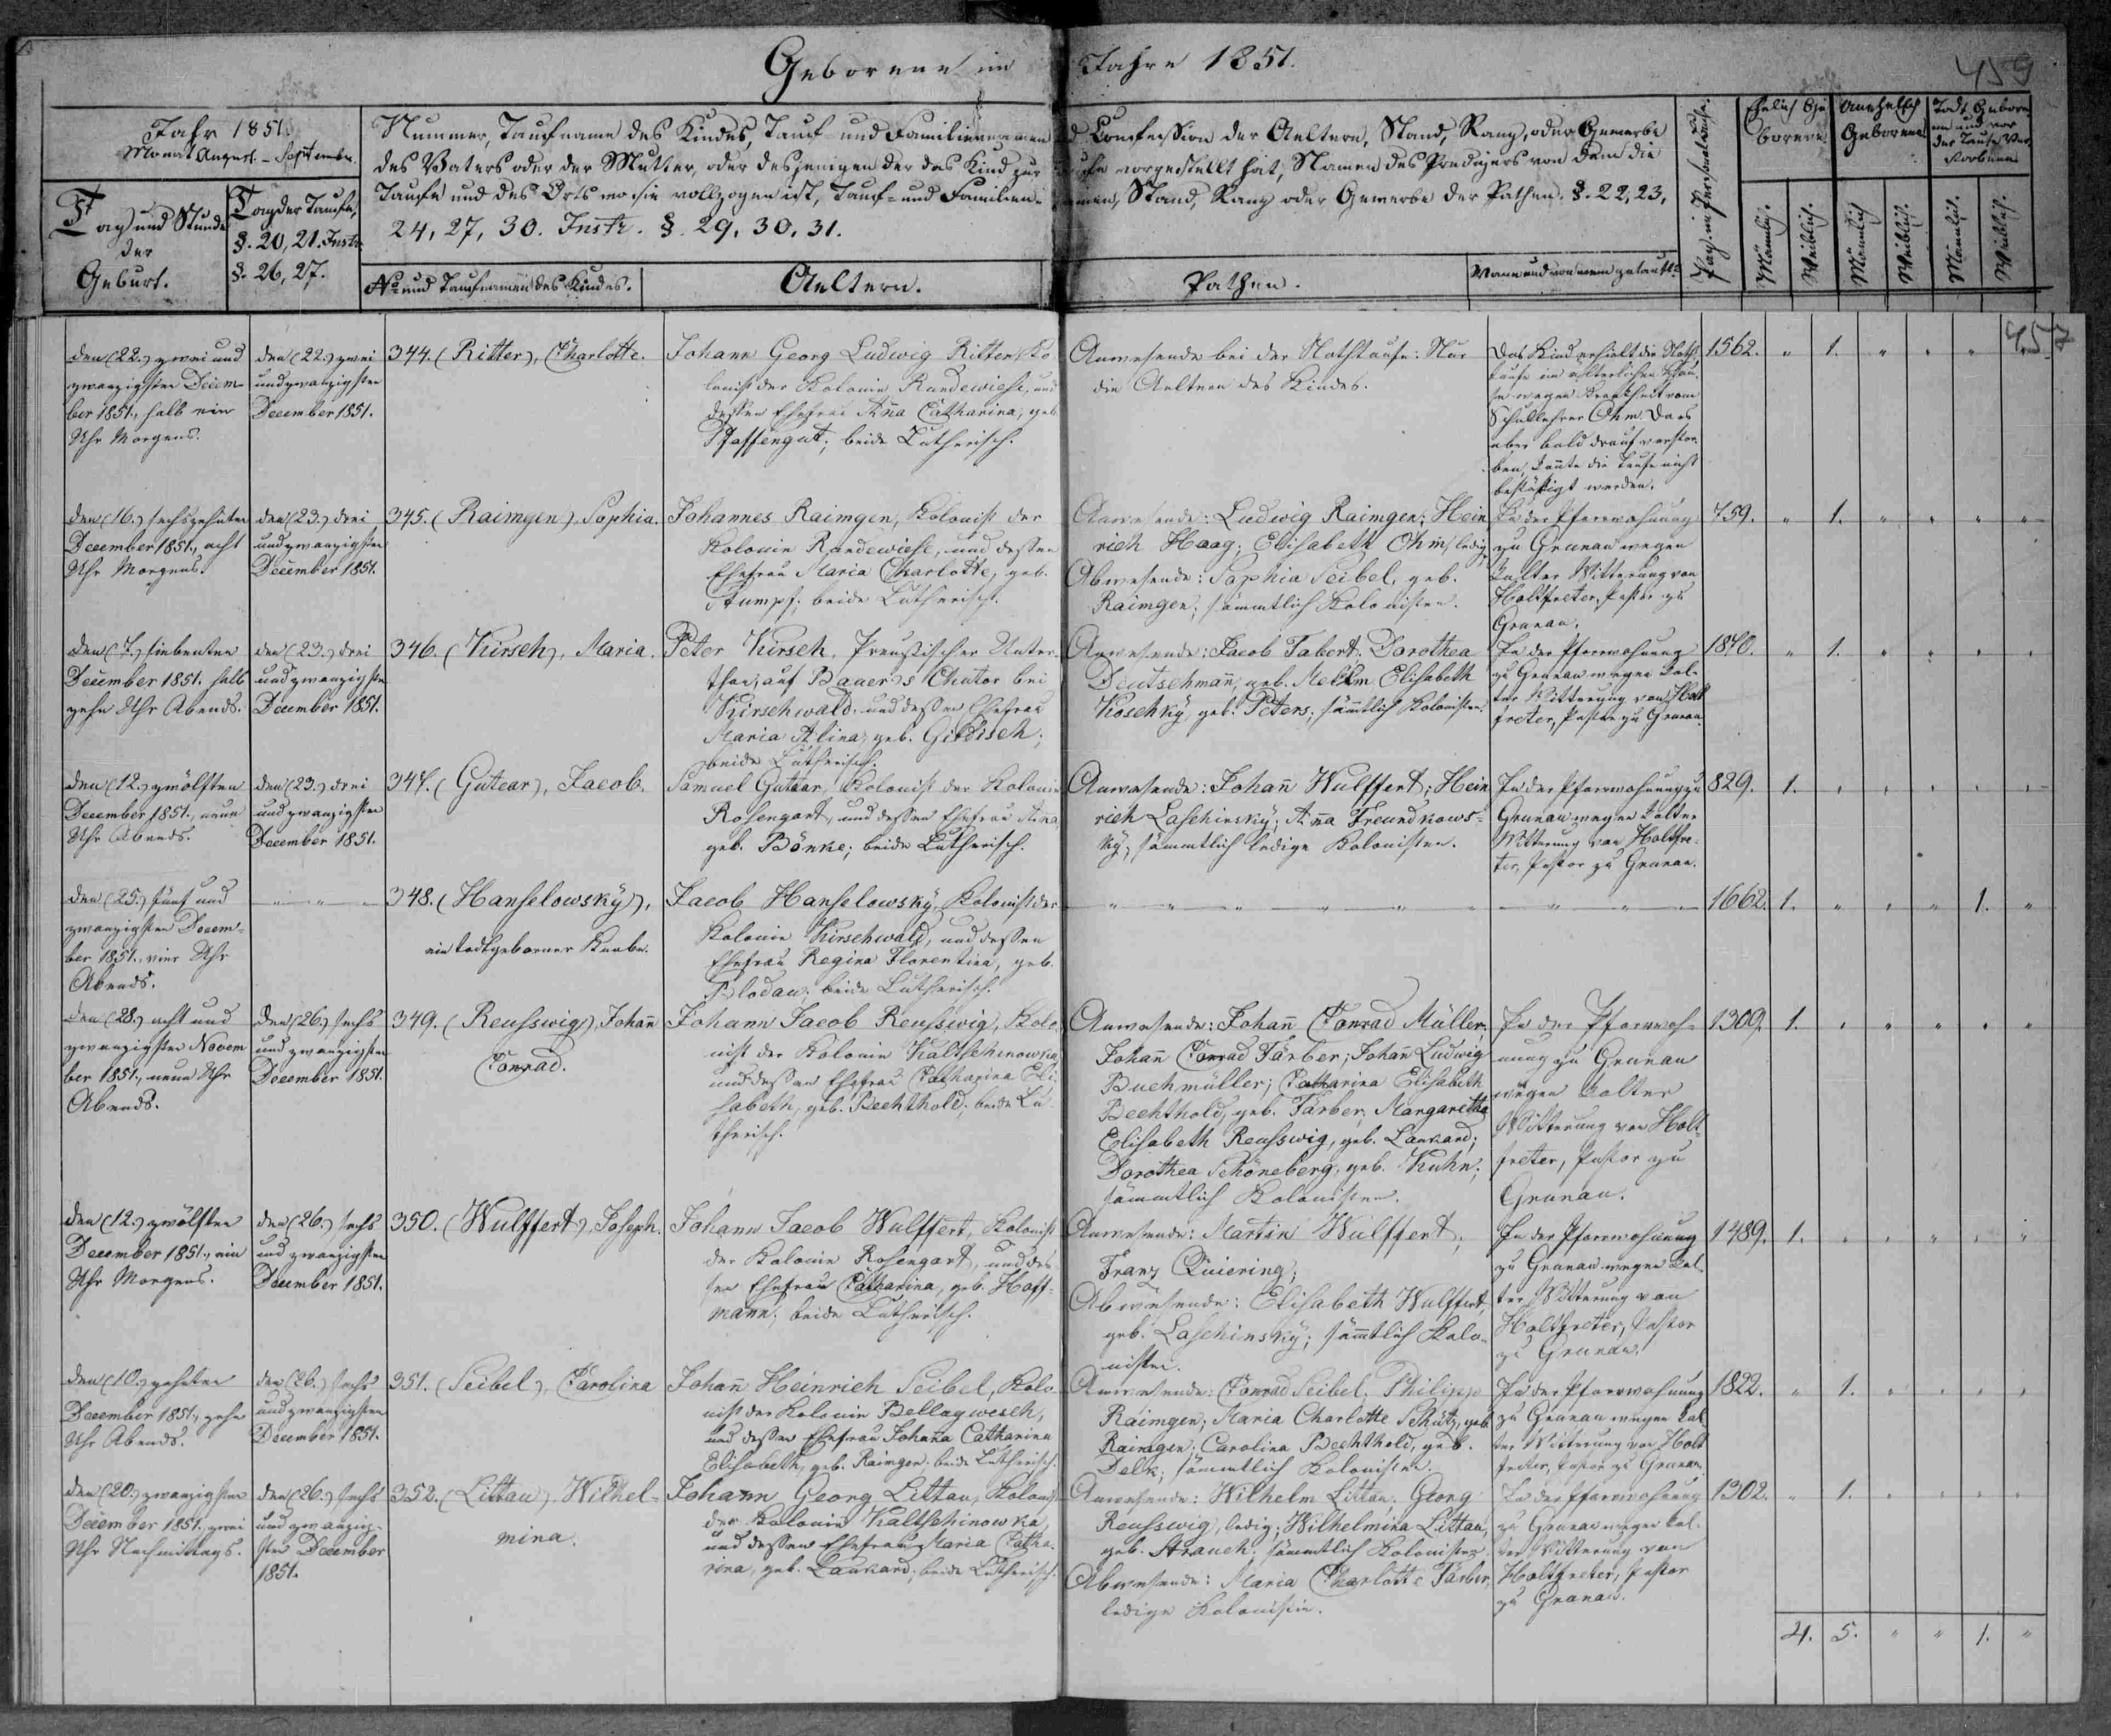 Geborene im Jahre 1851.
459
Jahr 1851.
Monat August - September
Tag und Stunde
der
Geburt.
Tag der Taufe,
§. 20, 21. Instr.
§. 26, 27.
Nummer, Taufname des Kindes, Tauf- und Familiennamen
des Vaters oder der Mutter, oder desjenigen der das Kind zur
Taufe und des Orts wo sie vollzogen ist, Tauf- und Familien-
24, 27, 30. Instr. §. 29, 30, 31.
No und Taufnamen des Kindes.
Aeltern.
Confession der Aeltern, Stand, Rang, oder Gewerbe
vorgestellt hat, Namen des Predigers von dem die
Stand, Rang oder Gewerbe der Pathen. §. 22, 23,
Pathen.
Wann und von wem getauft.
Pag. im Personalbuche.
Ehelich Ge
borene
Unehelich
Geborene
Todt Gebore
ne und vor
der Taufe Ver
storbene
Männlich.
Weiblich.
Männlich
Weiblich.
Männlich.
Weiblich.
457
den (22.) zwei und
zwanzigsten Decem-
ber 1851., halb ein
Uhr Morgens.
den (22.) zwei
und zwanzigsten
December 1851.
344. (Ritter), Charlotte.
Johann Georg Ludwig Ritter, Ko
lonist der Kolonie Rundewiese, und
dessen Ehefrau Anna Catharina, geb.
Pfaffengut; beide Lutherisch.
Anwesende bei der Nothtaufe: Nur
die Aeltern des Kindes.
Das Kind erhielt die Noth
taufe im älterlichen Hau-
se wegen Krankheit vom
Schullehrer Ohm. Da es
aber bald drauf verstor-
ben, konnte die Taufe nicht
bestätigt werden.
1562. " 1. " " "
den (16.) sechszehnten
December 1851., acht
Uhr Morgens.
den (23.) drei
und zwanzigsten
December 1851.
345. (Raimgen), Sophia.
Johannes Raimgen, Kolonist der
Kolonie Rundewiese, und dessen
Ehefrau Maria Charlotte, geb.
Stumpf; beide Lutherisch.
Anwesende: Ludwig Raimgen; Hein
rich Haag; Elisabeth Ohm, ledig,
Abwesende: Sophia Seibel, geb.
Raimgen; sämmtlich Kolonisten.
In der Pfarrwohnung
zu Grunau wegen
kalter Witterung von
Holtfreter, Pastor zu
Grunau.
759. " 1. " " " "
den (7.) siebenten
December 1851. halb
zehn Uhr Abends.
den (23.) drei
und zwanzigsten
December 1851.
346. (Kirsch), Maria.
Peter Kirsch, Preußischer Unter-
than, auf Bauer's Chutor bei
Kirschwald, und dessen Ehefrau
Maria Alina, geb. Gibbisch;
beide Lutherisch.
Anwesende: Jacob Tabert. Dorothea
Deutschmañ, geb. Mellm Elisabeth
Koschky, geb. Peters; sämtlich Kolonisten.
In der Pfarrwohnung
zu Grunau wegen kal-
ter Witterung von Holt
freter, Pastor zu Grunau.
1840. " 1. " " " "
den (12.) zwölften
December 1851., neun
Uhr Abends.
den (23.) drei
und zwanzigsten
December 1851.
347. (Gutear), Jacob.
Samuel Gutear, Kolonist der Kolonie
Rosengart, und dessen Ehefrau Aña,
geb. Bönke; beide Lutherisch.
Anwesende: Johañ Wulffert; Hein
rich Laschinsky; Aña Freundkows-
ky; sämmtlich ledige Kolonisten.
In der Pfarrwohnung zu
Grunau wegen kalter
Witterung von Holtfre-
ter, Pastor zu Grunau.
829. 1. " " " " "
den (25.) fünf und
zwanzigsten Decem-
ber 1851., vier Uhr
Abends.
348. (Hanselowsky),
ein todtgeborner Knabe.
Jacob Hanselowsky, Kolonist der
Kolonie Kirschwald, und dessen
Ehefrau Regina Florentina, geb.
Plodau; beide Lutherisch.
1662. 1. " " " 1. "
den (28.) acht und
zwanzigsten Novem
ber 1851., neun Uhr
Abends.
den (26.) sechs
und zwanzigsten
December 1851.
349. (Reusswig), Johañ
Conrad.
Johann Jacob Reusswig, Kolo
nist der Kolonie Kaltschinowka,
und dessen Ehefrau Catharina Eli-
sabeth, geb. Bechthold; beide Lu-
therisch.
Anwesende: Johañ Conrad Müller;
Johañ Conrad Färber; Johañ Ludwig
Buchmüller; Catharina Elisabeth
Bechthold, geb. Färber; Margaretha
Elisabeth Reusswig, geb. Lankard;
Dorothea Schöneberg, geb. Kuhn;
sämmtlich Kolonisten.
In der Pfarrwoh-
nung zu Grunau
wegen kalter
Witterung von Holt-
freter, Pastor zu
Grunau.
1309. 1. " " " " "
den (12.) zwölften
December 1851., ein
Uhr Morgens.
den (26.) sechs
und zwanzigsten
December 1851.
350. (Wulffert), Joseph.
Johann Jacob Wulffert, Kolonist
der Kolonie Rosengart, und des-
sen Ehefrau Catharina, geb. Hoff-
mann; beide Lutherisch.
Anwesende: Martin Wulffert;
Franz Quiering;
Abwesende: Elisabeth Wulffert,
geb. Laschinsky; sämtlich Kolo-
nisten.
In der Pfarrwohnung
zu Grunau wegen kal-
ter Witterung von
Holtfreter, Pastor
zu Grunau.
1489. 1. " " " " "
den (10.) zehnten
December 1851., zehn
Uhr Abends.
den (26.) sechs
und zwanzigsten
December 1851.
351. (Seibel), Carolina
Johañ Heinrich Seibel, Kolo
nist der Kolonie Bellagwesch,
und dessen Ehefrau Johaña Catharina
Elisabeth, geb. Raimgen. beide Lutherisch.
Anwesende: Conrad Seibel; Philipp
Raimgen; Maria Charlotte Schütz, geb.
Raimgen; Carolina Bechthold, geb.
Delk; sämmtlich Kolonisten.
In der Pfarrwohnung
zu Grunau wegen kal
ter Witterung von Holt
freter, Pastor zu Grunau.
1822. " 1. " " " "
den (20.) zwanzigsten
December 1851. zwei
Uhr Nachmittags.
den (26.) sechs
und zwanzig-
sten December
1851.
352. (Littau), Wilhel-
mina.
Johann Georg Littau, Kolonist
der Kolonie Kaltschinowka,
und dessen Ehefrau Maria Catha-
rina, geb. Lankard; beide Lutherisch.
Anwesende: Wilhelm Littau; Georg
Reusswig, ledig; Wilhelmina Littau,
geb. Strauch. sämmtlich Kolonisten.
Abwesende: Maria Charlotte Färber,
ledige Kolonistin.
In der Pfarrwohnung
zu Grunau wegen kal-
ter Witterung von
Holtfreter, Pastor
zu Grunau.
1302. " 1. " " " "
4. 5. " " 1. "